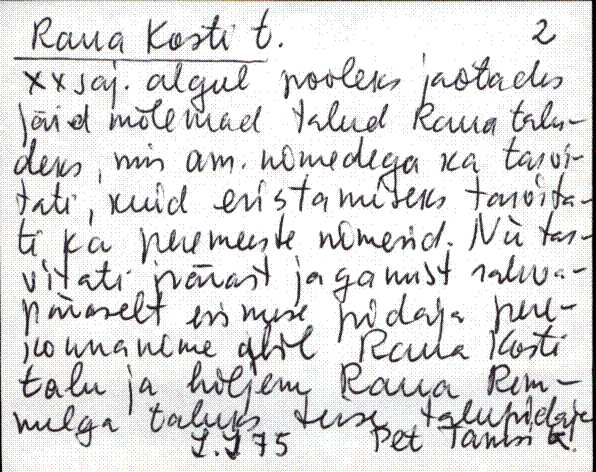 Raua Kosti t. 2
XX saj. algul pooleks jaotades
jäid mõlemad talud Raua talu-
deks, mis am. nimedega ka tarvi-
tati, kuid eristamiseks tarvita-
ti ka peremeeste nimesid. Nii tar-
vitati pärast jagamist rahva-
päraselt esimese pidaja pere-
konnanime järele Raua Kosti
talu ja hiljem Raua Rem-
mulga taluks teise talupidaja
I.I 75 Pet